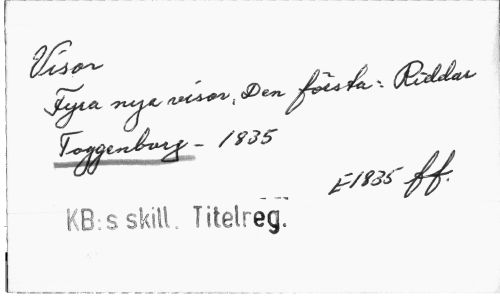 Visor
Fyra nya visor. Den första: Riddar
Toggenburg - 1835
E1835 ff.
KB:s skill. Titelreg.